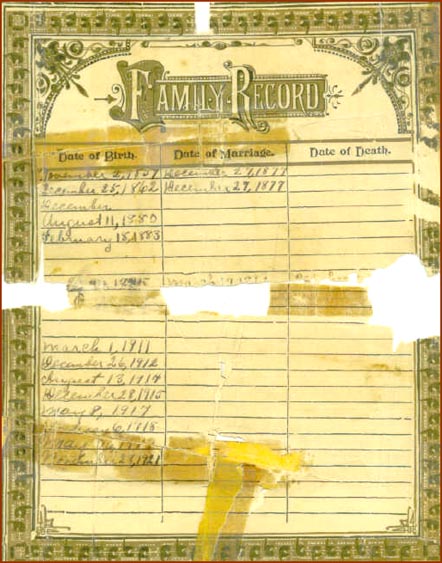 FAMILY RECORD
Date of Birth. Date of Marriage. Date of Death.
November 2, 1857 December 27, 1877
December 25, 1862 December 27, 1877
December
August 11, 1880
February 18, 1883
March 1, 1911
December 26, 1912
August 13, 1914
December 28, 1915
May 8, 1917